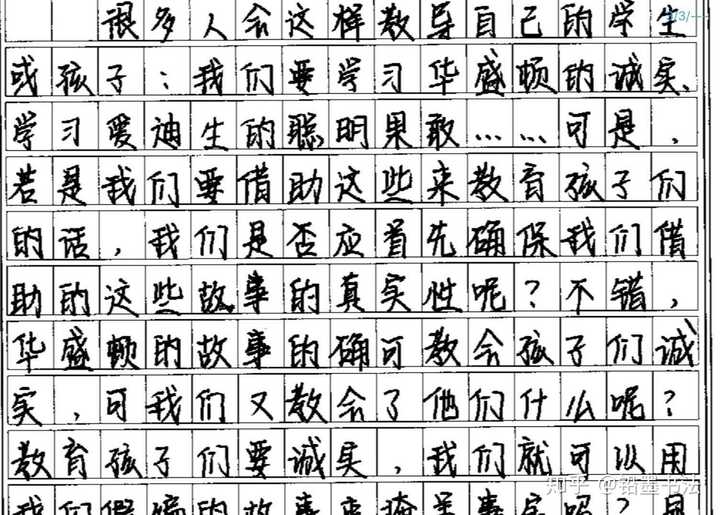 很多人会这样教导自己的学生
或孩子：我们要学习华盛顿的诚实、
学习爱迪生的聪明果敢……可是，
若是我们要借助这些来教育孩子们
的话，我们是否应首先确保我们借
助的这些故事的真实性呢？不错，
华盛顿的故事的确可教会孩子们诚
实，可我们又教会了他们什么呢？
教育孩子们要诚实，我们就可以用
我们假编的故事来掩盖事实吗？
知乎 @铅墨书法